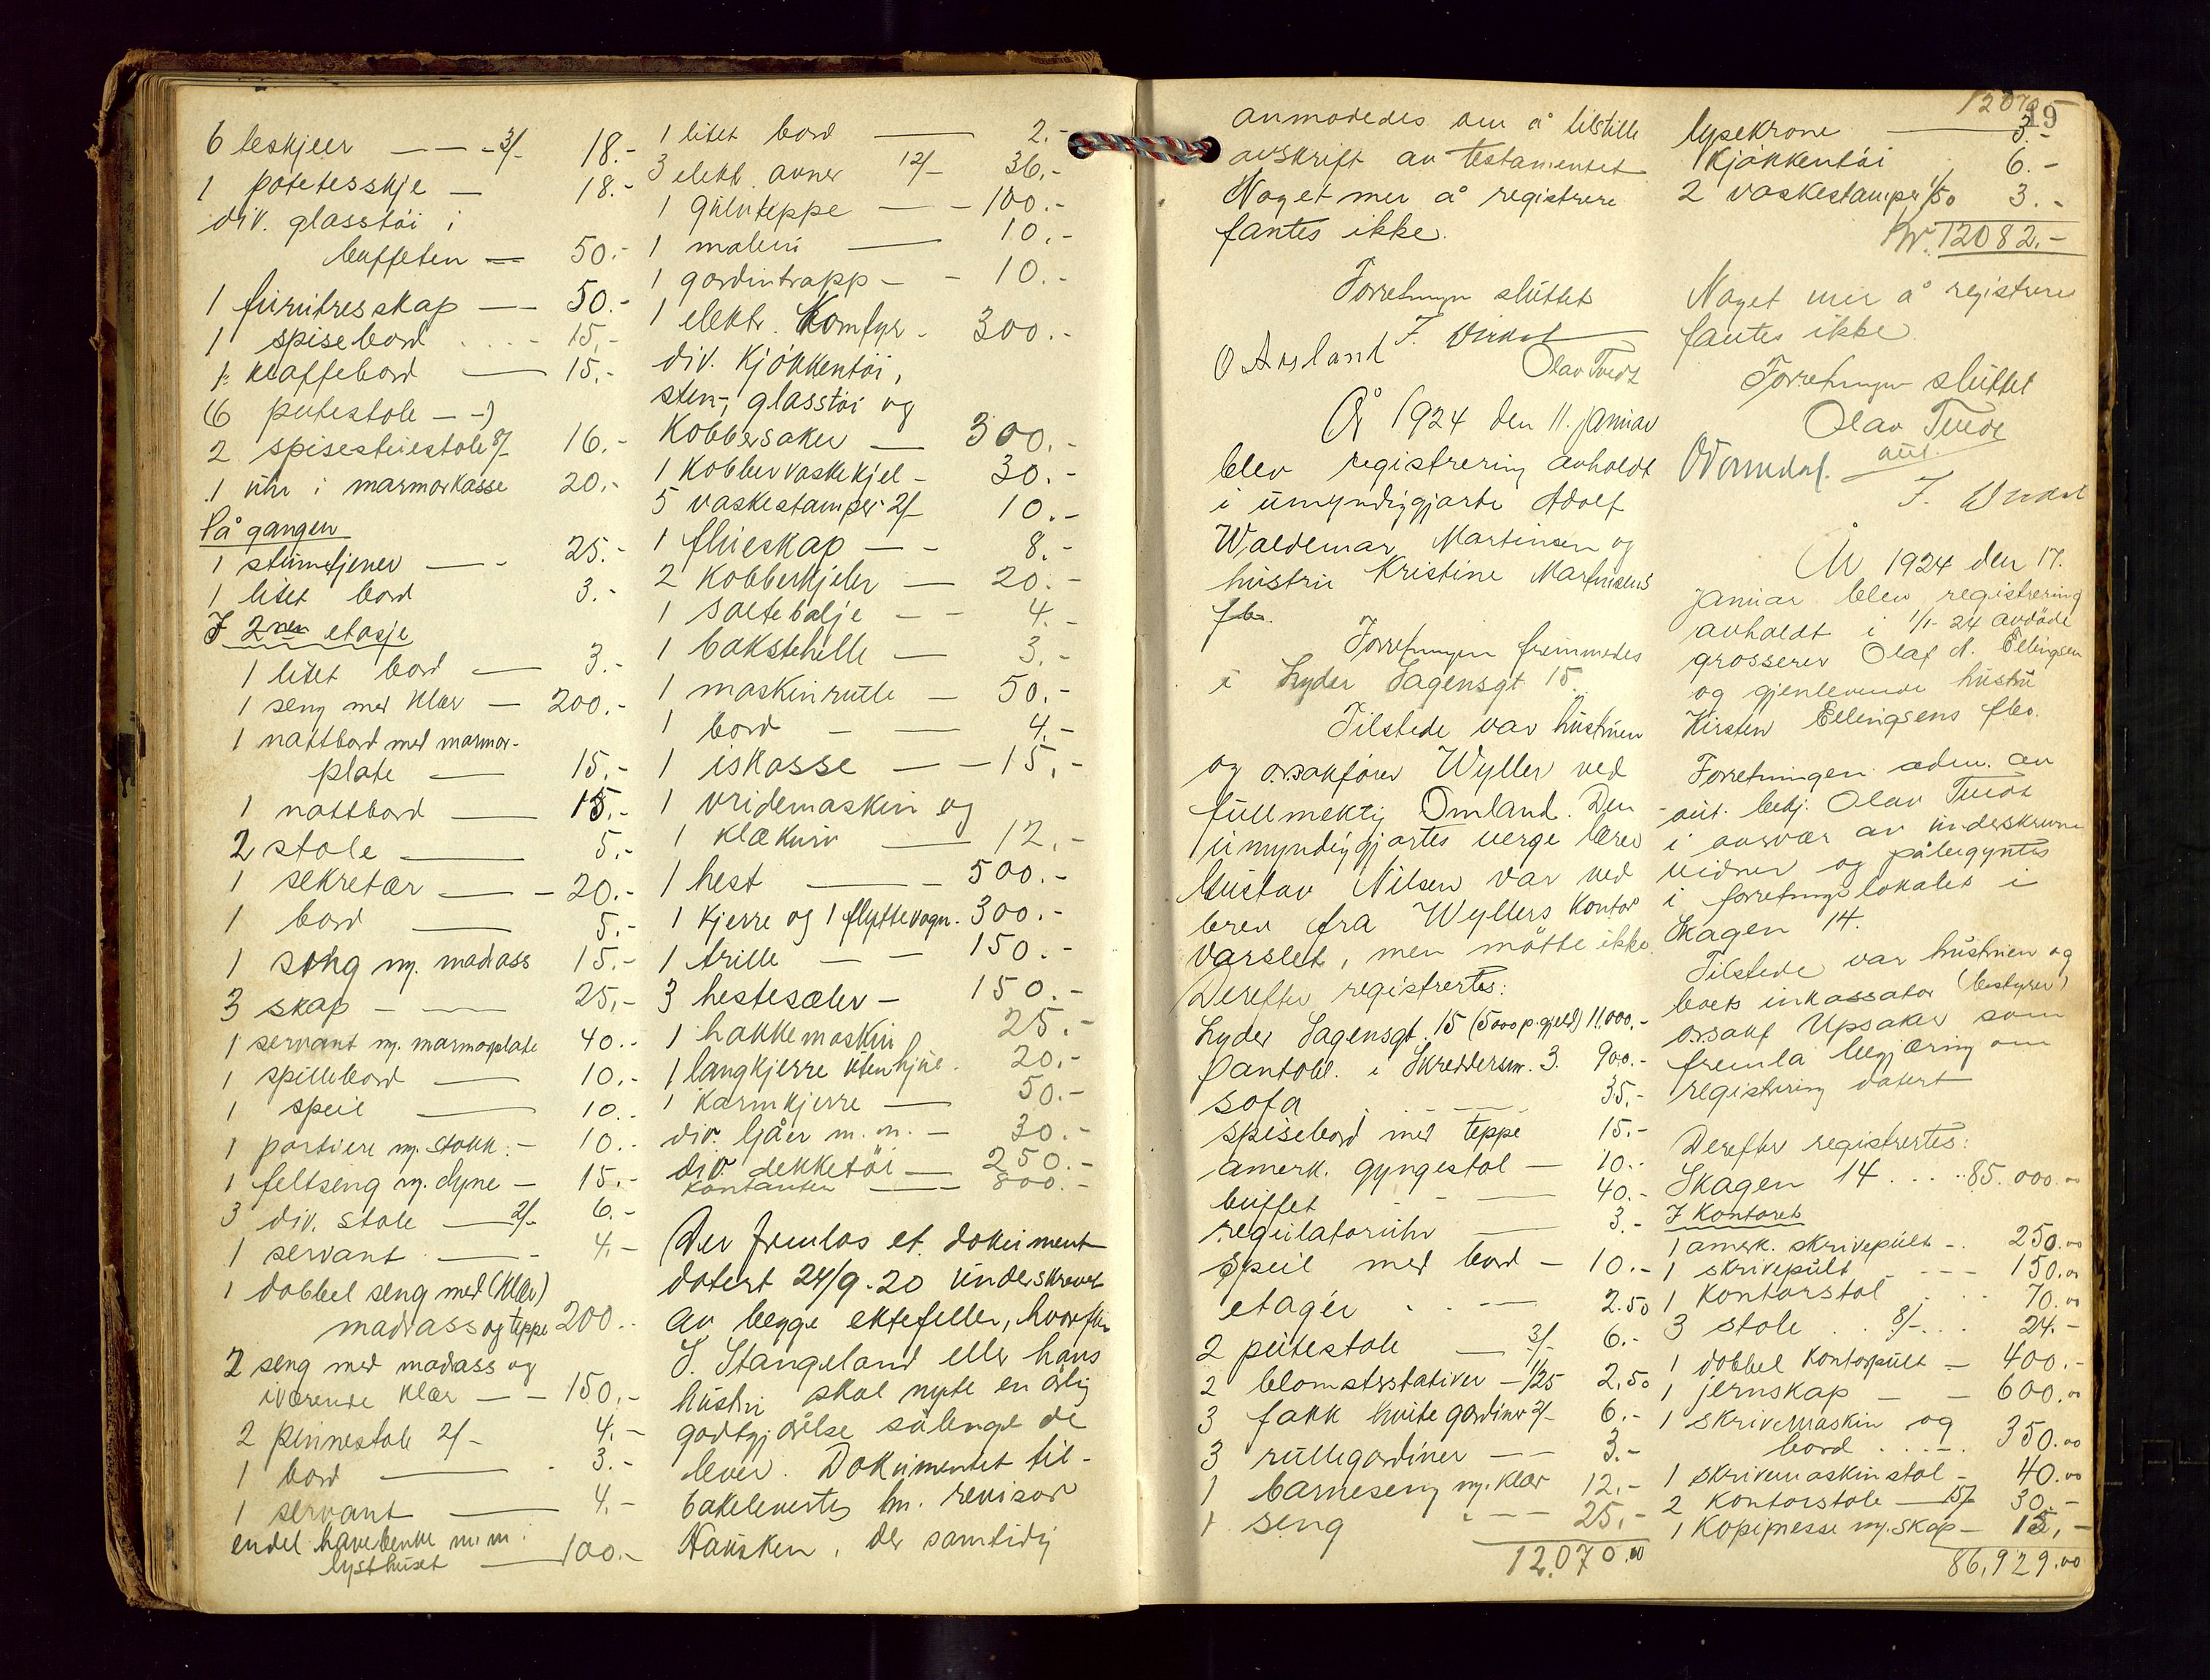 6 teskjeer — — - 3/- 18.-
1 potetesskje — 18.-
div. glasstöi i
buffeten — 50.-
1 furutresskap — 50.-
1 spisebord . . . - 15.-
1 klaffebord — 15.-
(6 putestole — -)
2 spisestuestole 8/- 16.-
1 uhr i marmorkasse 20.-
På gangen
1 stumtjener — - 25.-
1 litet bord 3.-
I 2nen etasje
1 litet bord — 3.-
1 seng med klær — 200.-
1 nattbord med marmor-
plate — 15.-
1 nattbord — 15.-
2 stole — 5.-
1 sekretær — - 20.-
1 bord — 5.-
1 seng m. madrass 15.-
3 skap - — 25.-
1 servant m. marmorplate 40.-
1 spillebord — 10.-
1 speil — 10.-
1 portiere m. stokk. - 10.-
1 feltseng m. dyne - 15.-
3 div. stole — 2/- 6.-
1 servant — - 4.-
1 dobbel seng med (klær)
madrass og teppe 200.-
2 seng med madrass og
iværende klær — - 150.-
2 pinnestole 2/- 4.-
1 bord — 3.-
1 servant — 4.-
endel havebenke m.m. i
lysthuset — 100.-
1 litet bord — 2.-
3 elektr. ovner 12/- 36.-
1 gulvteppe — - 100.-
1 maleri — 10.-
1 gardintrapp - - 10.-
1 elektr. Komfyr - 300.-
div. kjökkentöi,
sten-, glasstöi og
Kobbersaker — 300.-
1 Kobbervaskekjel - 30.-
5 vaskestamper 2/- 10.-
1 flueskap — - 8.-
2 Kobberkjeler — 20.-
1 saltebalje — - 4.-
1 bakstehelle — 3.-
1 maskinrulle — 50.-
1 bord - — 4.-
1 iskasse — - 15.-
1 vridemaskin og
1 klækurv — 12.-
1 hest — - 500.-
1 Kjerre og 1 flyttevogn. 300.-
1 trille — - 150.-
3 hestesæler - 150.-
1 hakkemaskin 25.-
1 langkjerre uten hjul. 20.-
1 karmkjerre — 50.-
div. ljåer m. m. - 30.-
div dekketöi — 250.-
Kontanter — 800.-
Der fremlas et dokument
datert 24/9-20 underskrevet
av begge ektefeller, hvorefter
S. Stangeland eller hans
hustru skal nyte en årlig
godtgjörelse sålenge de
lever. Dokumentet til-
bakelevertes hr. revisor
Hausken, der samtidig
anmodedes om å tilstille
avskrift av testamentet
Noget mer å registrere
fantes ikke.
Forretningen sluttet
O Aarsland
Olav Tvedt
År 1924 den 11. januar
blev registrering avholdt
i umyndiggjorte Adolf
Waldemar Martinsen og
hustru Kristine Martinsens
fb.
Forretningen fremmedes
i Lyder Sagensgt 15.
Tilstede var hustruen
og o.r.sakfører Wyller ved
fullmektig Omland. Den
umyndiggjortes verge lærer
Gustav Nilsen var ved
brev fra Wyllers Kontor
varslet, men mötte ikke.
Derefter registrertes:
Lyder Sagensgt. 15 (5000 p. gjeld) 11.000.-
Pantobl. i Skreddersm. 3. 900.-
sofa . - — 35.-
spisebord med teppe 15.-
amerk. gyngestol — 10.-
buffet - — 40.-
regulatoruhr — 3.-
speil med bord - 10.-
etagér . . — 2.50
2 putestole — 3/- 6.-
2 blomsterstativer - 1/25 2.50
3 fakk hvite gardiner 2/- 6.-
3 rullegardiner — - 3.-
1 barneseng m. klær 12.-
1 seng . - - 25.-
12.070.00
19
12070
lysekrone — 3.-
Kjökkentöi 6.-
2 vaskestamper 1/50 3.-
Kr. 12082.-
Noget mer å registrere
fantes ikke.
Forretningen sluttet
Olav Tvedt
aut.
År 1924 den 17.
januar blev registrering
avholdt i 1/1-24 avdöde
grosserer Olaf A. Ellingsen
og gjenlevende hustru
Kirsten Ellingsens fbo.
Forretningen adm. av
aut. betj. Olav Tvedt
i overvær av underskrevne
vidner og påbegyntes
i forretningslokalet i
Skagen 14.
Tilstede var hustruen og
boets inkassator (bestyrer)
o.r.sakf Upsaker som
fremla begjæring om
registrering datert
Derefter registrertes:
Skagen 14 . . . . 85.000.00
I Kontoret
1 amerk. skrivepult - . 250.00
1 skrivepult - - - 150.00
1 Kontorstol . . . 70.00
3 stole . . 8/- . . 24.-
1 dobbel Kontorpult — 400.-
1 jernskap — - 600.00
1 skrivemaskin og
bord . . . - . 350.00
1 skrivemaskinstol - 40.00
2 Kontorstole — 15/- 30.-
1 Kopipresse m. skap — 15.-
86,929.00